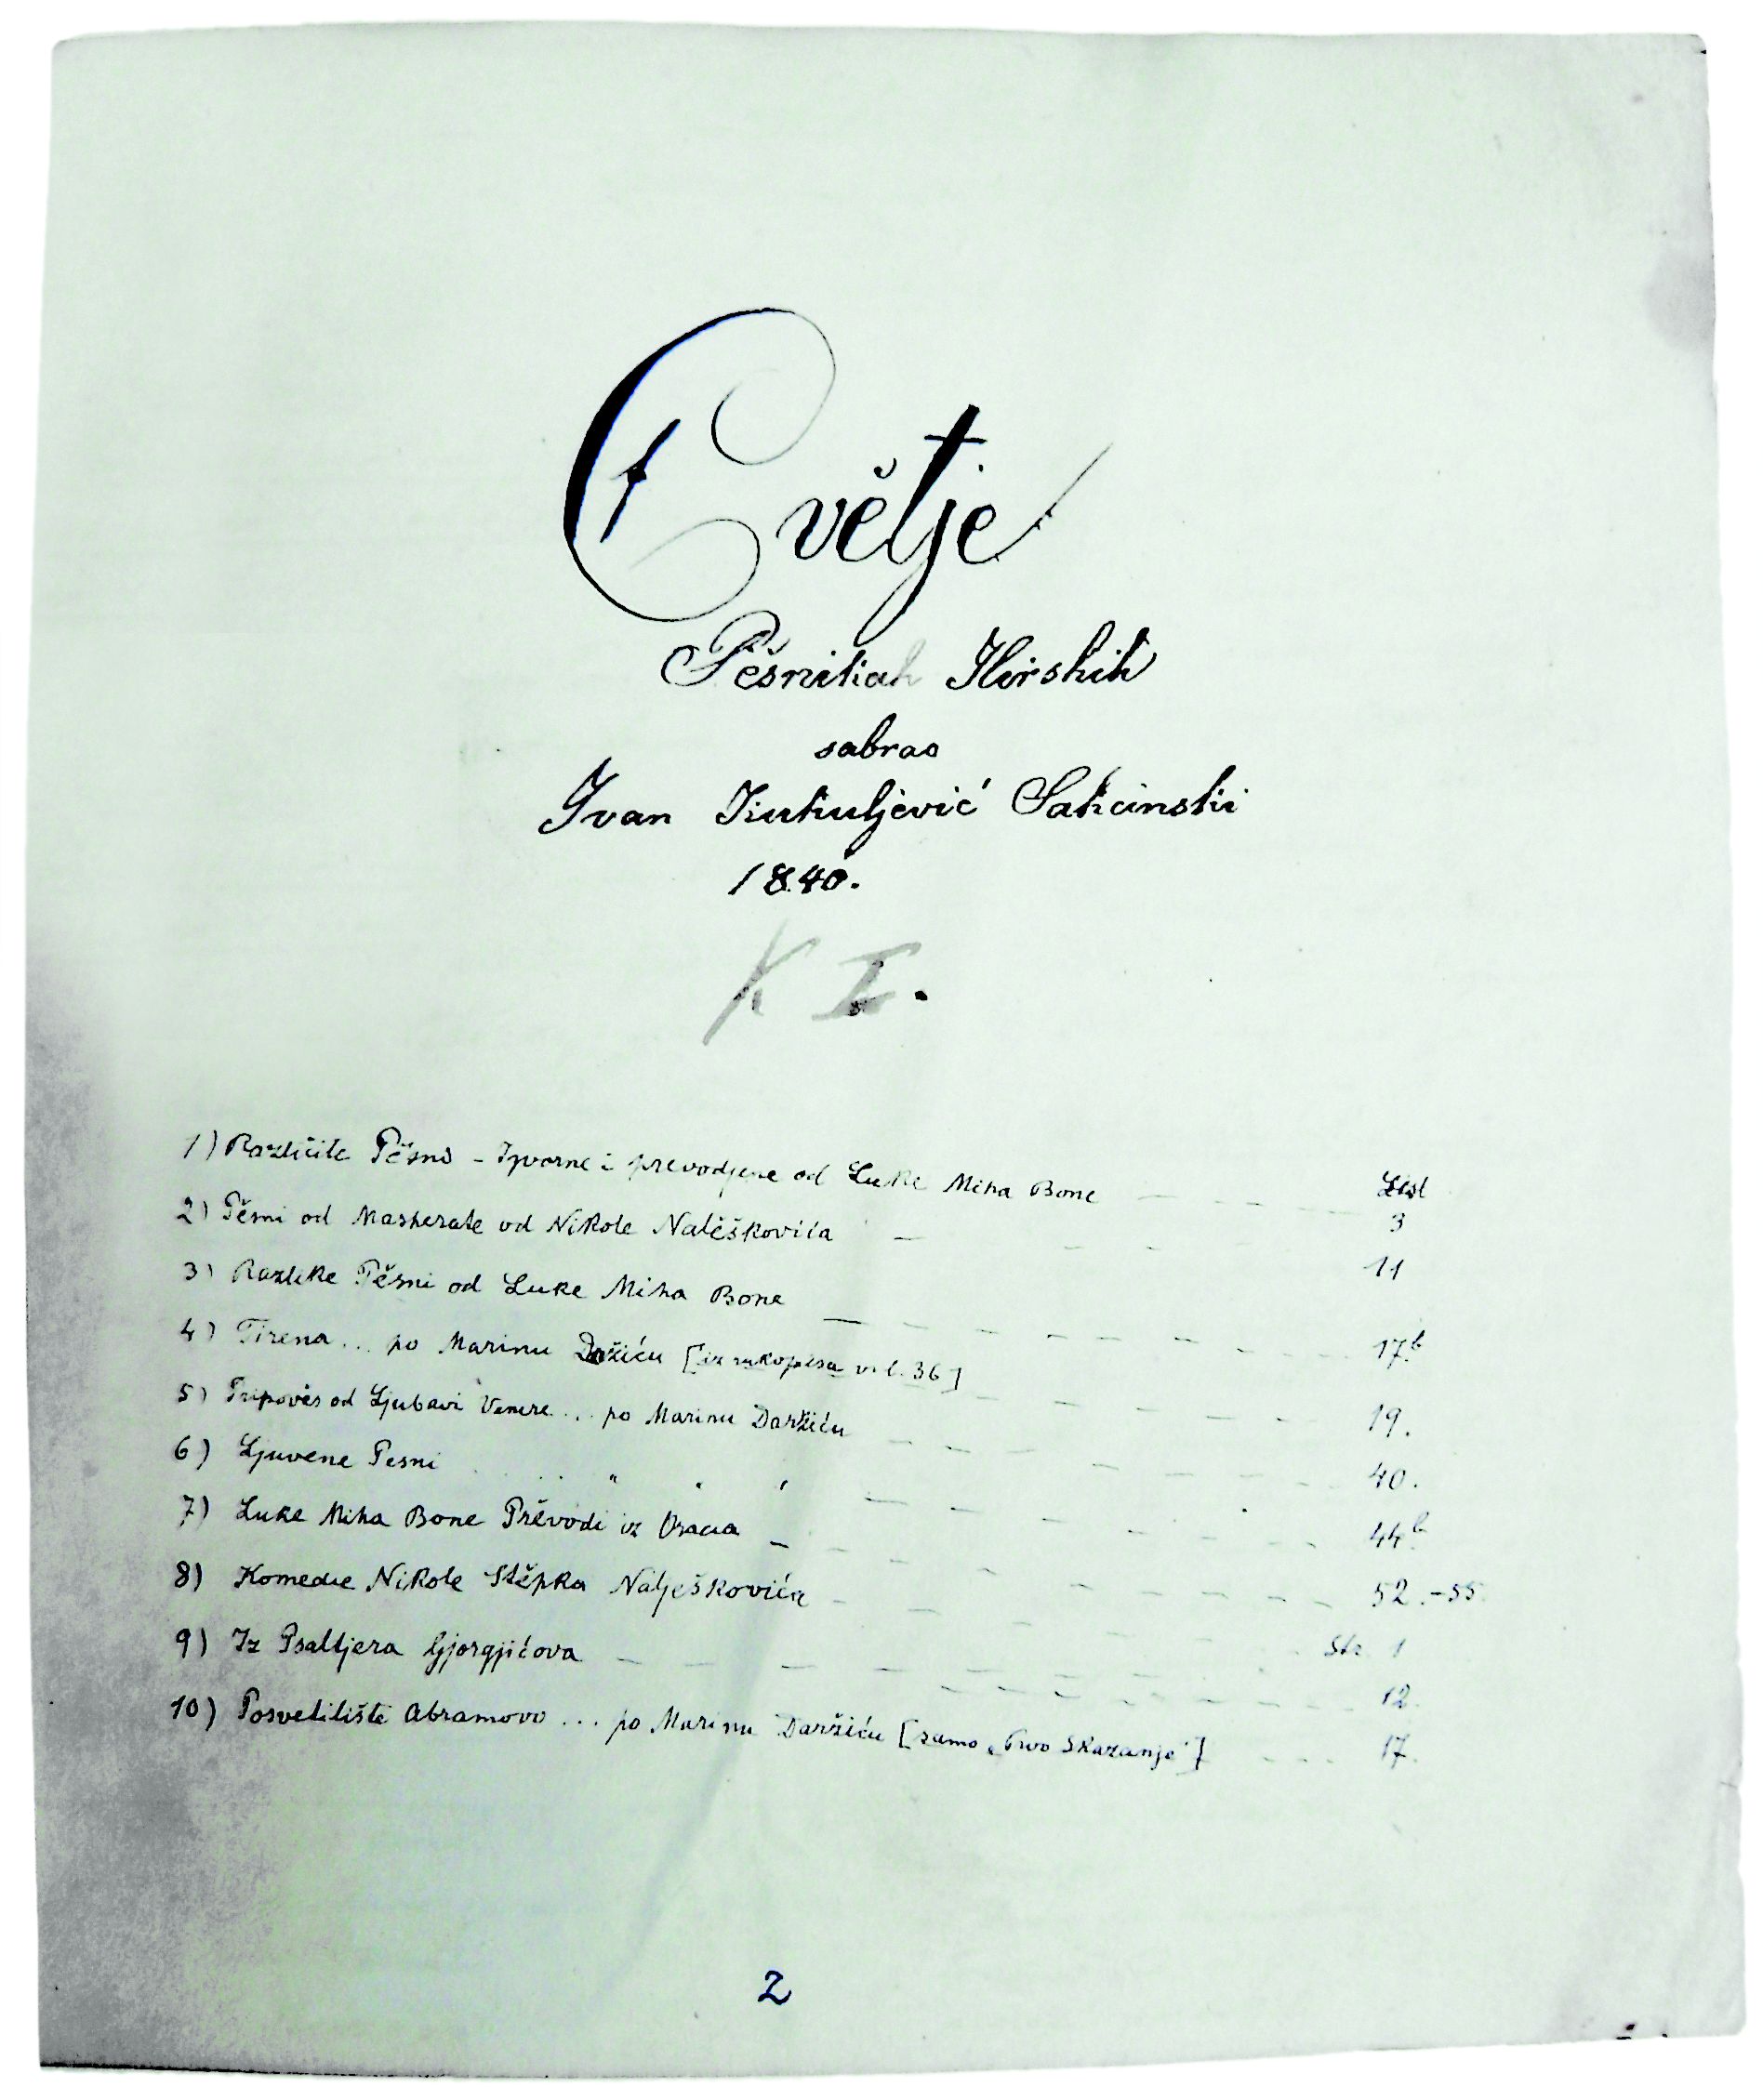 Cvětje
Pěsnikah Ilirskih
sabrao
Ivan Kukuljević Sakcinski
1840.
K I.
List
1) Različite Pěsni - Izvorne i prevodjene od Luke Miha Bone — — — — 3
2) Pěsni od Maskerate od Nikole Nalěškovića — — — 11
3) Razlike Pěsni od Luke Miha Bone — — — — — — 17b
4) Tirena ... po Marinu Držiću [iz rukopisa vel. 36] — — — — 19.
5) Pripoviěs od Ljubavi Venere ... po Marinu Daržiću — — — — — — 40.
6) Ljuvene Pesni . . . " " " — — — — — 44b
7) Luke Miha Bone Prěvodi iz Oracia — — — — — — 52.-55.
8) Komedie Nikole Stěpka Nalješkovića — — — — Str. 1
9) Iz Psaltjera Gjorgjićova — — — — — — 12.
10) Posvetilište Abramovo ... po Marinu Daržiću [samo „Prvo Skazanje"] - - - - 17.
2